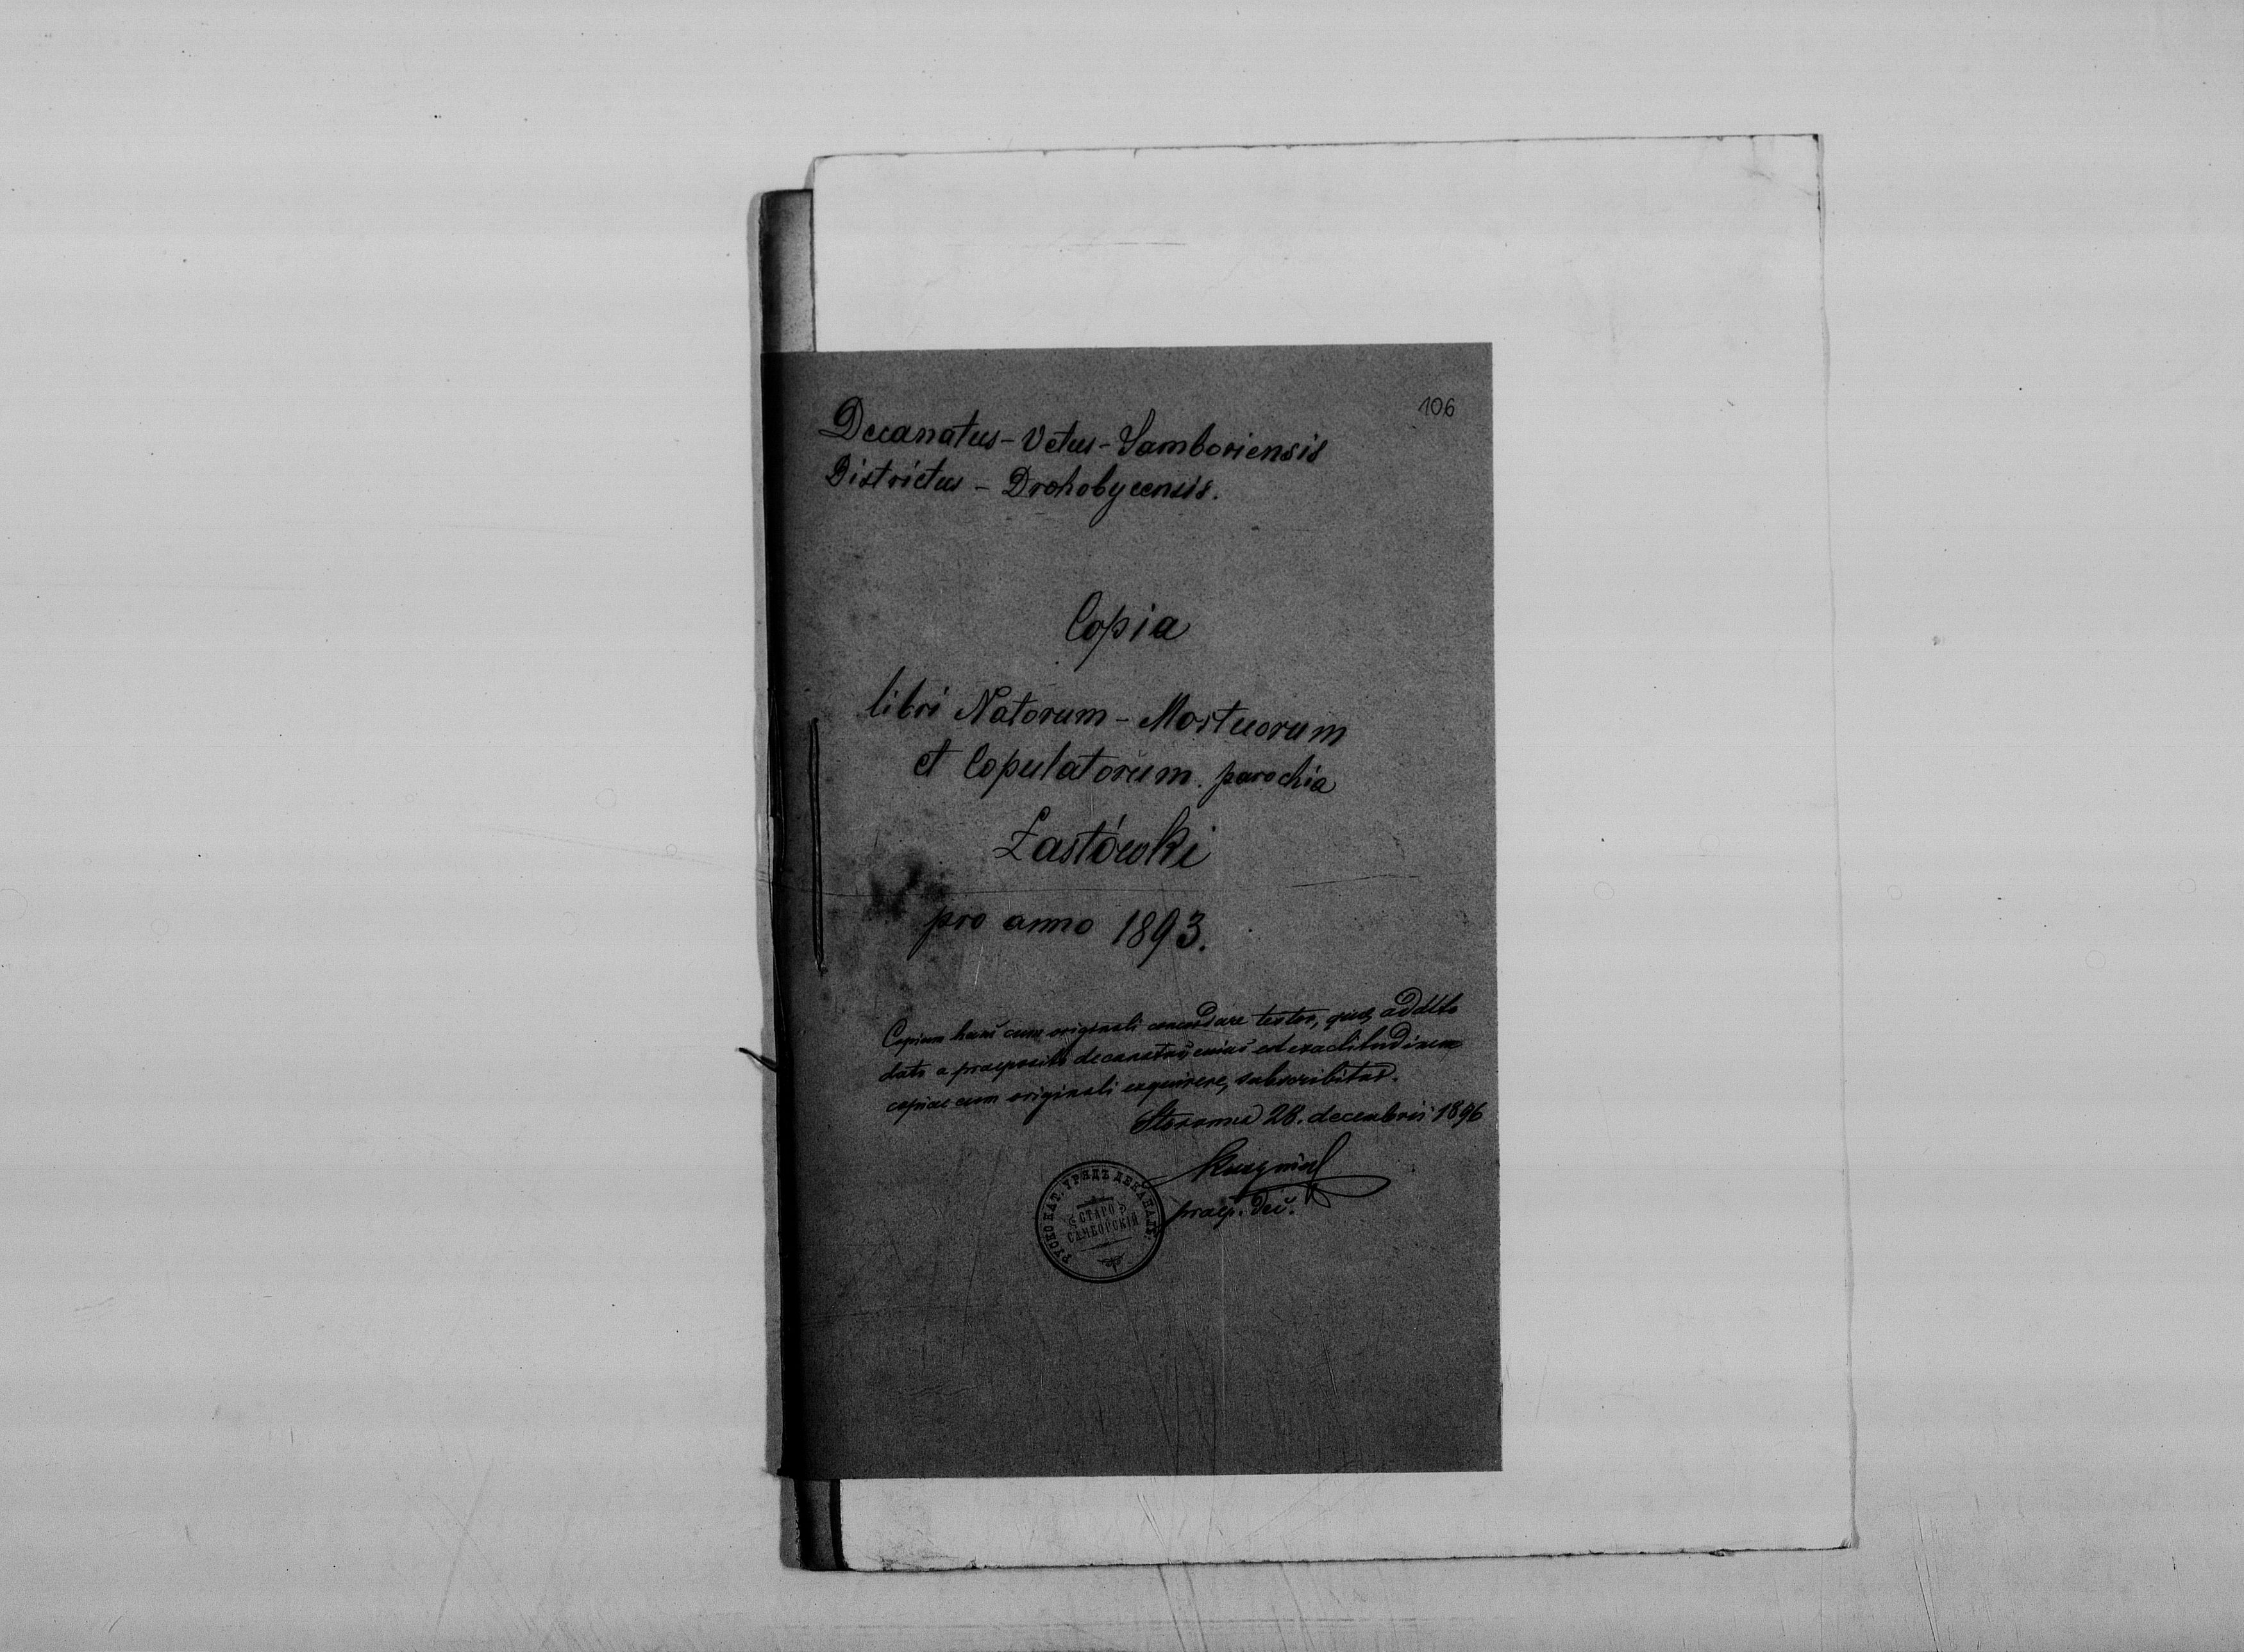 106
Decanatus - Vetus - Samboriensis
Districtus - Drohobycensis.
Copia
libri Natorum - Mortuorum
et Copulatorum. parochia
Łastówki
pro anno 1893.
Copiam hanc cum originali concordare testor, quod addito
dato a praeposito decanatus cuius est exactitudinem
copiae cum originali exquirere, subscribitur.
28. decembris 1896
praep. dec.
РУСКО КАТ. УРЯДЪ ДЕКАНАЛЬ.
СТАРО
САМБОРСКІЙ